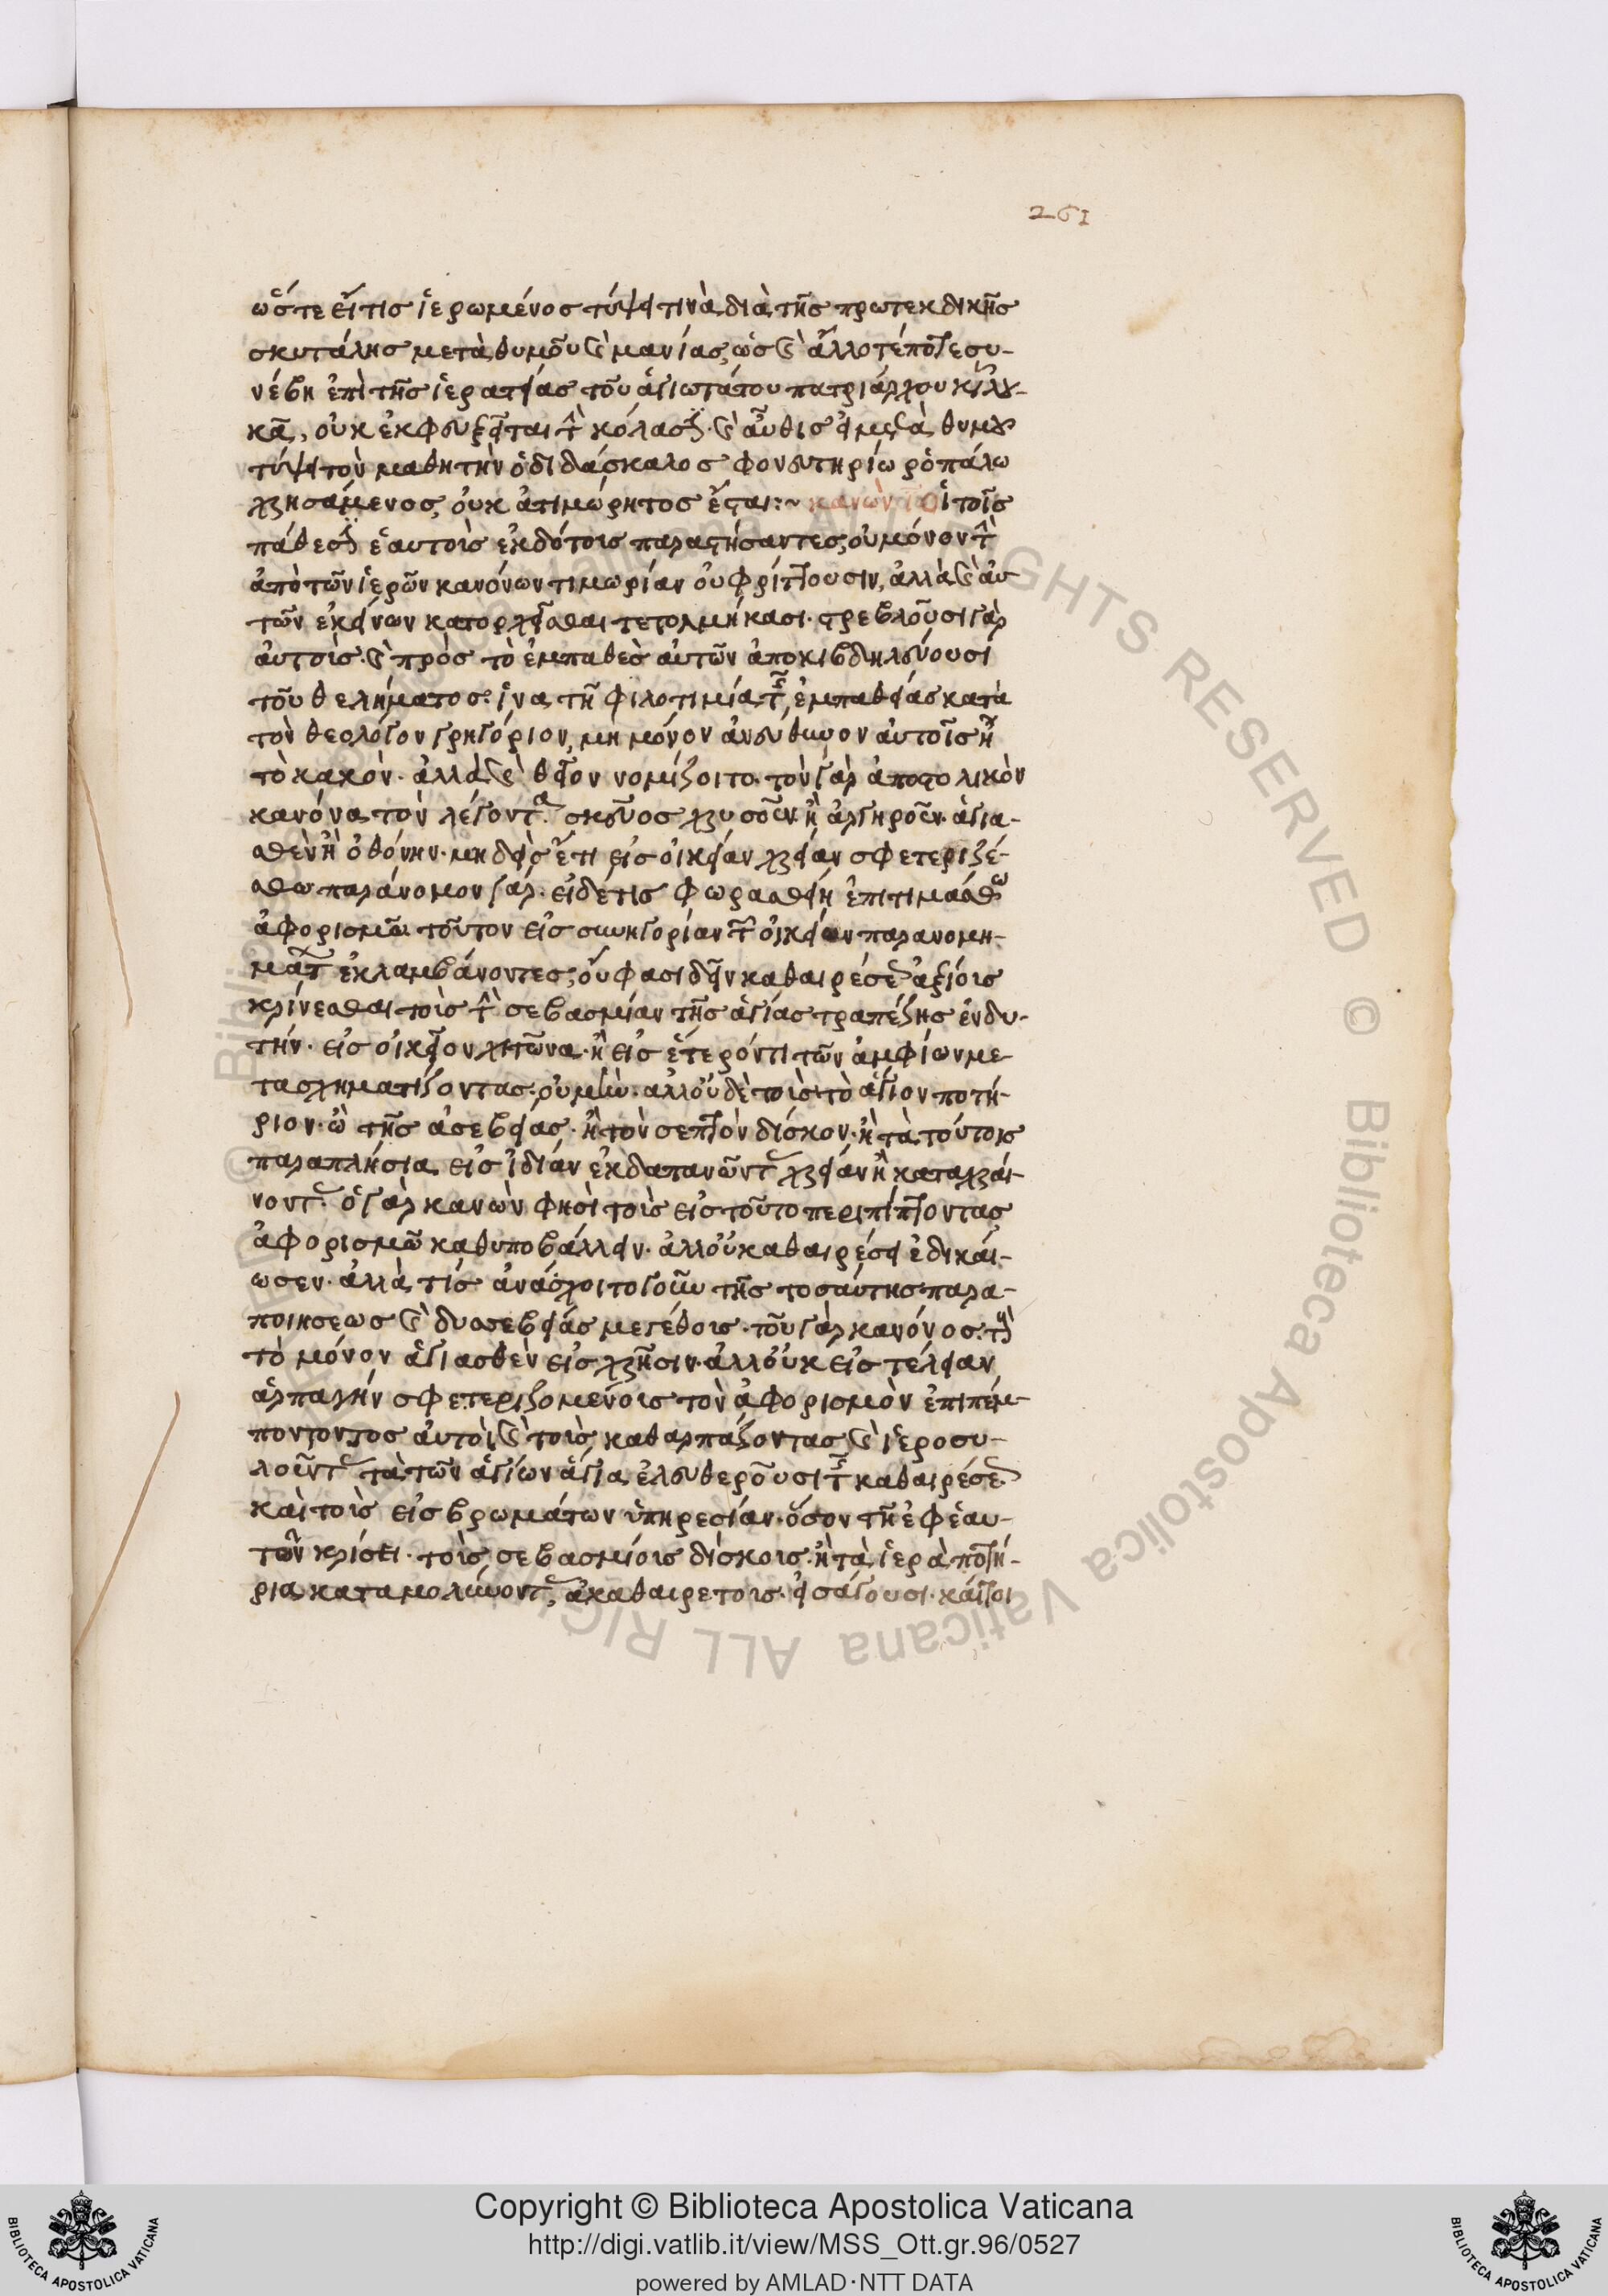 261
ὥστε εἴ τις ἱερωμένος τύψει τινὰ διὰ τῆς πρωτεκδικῆς
σκυτάλης μετὰ θυμοῦ καὶ μανίας, ὡς καὶ ἄλλοτέ ποτε συ-
νέβη ἐπὶ τῆς ἱερατείας τοῦ ἁγιωτάτου πατριάρχου κυροῦ λου-
κᾶ, οὐκ ἐκφεύξεται τὴν κόλασιν· καὶ αὖθις εἰ μετὰ θυμοῦ
τύψει τὸν μαθητὴν ὁ διδάσκαλος φονευτηρίω ῥοπάλω
χρησάμενος, οὐκ ἀτιμώρητος ἔσται :~ κανὼν Οἱ τοῖς
πάθεσιν ἑαυτοὺς ἐκδότους παραστήσαντες, οὐ μόνον τὴν
ἀπὸ τῶν ἱερῶν κανόνων τιμωρίαν οὐ φρίττουσιν, ἀλλὰ καὶ αὐ
τῶν ἐκείνων κατορχεῖσθαι τετολμήκασι· στρεβλοῦσι γὰρ
αὐτοὺς· καὶ πρὸς τὸ ἐμπαθὲς αὐτῶν ἀποκιβδηλεύουσι
τοῦ θελήματος· ἵνα τῇ φιλοτιμία τῆς ἐμπαθείας κατὰ
τὸν θεολόγον γρηγόριον, μὴ μόνον ἀνεύθυνον αὐτοῖς ἦ
τὸ κακόν· ἀλλὰ καὶ θεῖον νομίζοιτο· τὸν γὰρ ἀποστολικὸν
κανόνα τὸν λέγοντα· σκεῦος χρυσοῦν ἢ ἀργυροῦν ἁγια-
σθὲν ἢ ὀθόνην· μηδεὶς ἔτι εἰς οἰκείαν χρείαν σφετεριζέ-
σθω παράνομον γάρ· εἰ δέ τις φωραθείη ἐπιτιμάσθω
ἀφορισμῶ τοῦτον εἰς συνηγορίαν τῶν οἰκείων παρανομη-
μάτων ἐκλαμβάνοντες, οὔ φασι δεῖν καθαιρέσεως ἀξίους
κρίνεσθαι τοὺς τὴν σεβασμίαν τῆς ἁγίας τραπέζης ἐνδυ-
τὴν· εἰς οἰκεῖον χιτῶνα· ἢ εἰς ἕτερόν τι τῶν ἀμφίων με-
τασχηματίζοντας· οὐ μὴν· ἀλλ' οὐδὲ τοὺς τὸ ἅγιον ποτή-
ριον· ὢ τῆς ἀσεβείας· ἢ τὸν σεπτὸν δίσκον· ἢ τὰ τούτοις
παραπλήσια εἰς ἰδίαν ἐκδαπανῶντας χρείαν ἢ καταχραί-
νοντας· ὁ γὰρ κανὼν φησὶ τοὺς εἰς τοῦτο περιπίπτοντας
ἀφορισμῶ καθυποβάλλειν· ἀλλ' οὐ καθαιρέσει ἐδικαί-
ωσεν· ἀλλὰ τίς ἀνάσχοιτο γοῦν τῆς τοσαύτης παρα-
ποιήσεως καὶ δυσσεβείας μεγέθους· τοῦ γὰρ κανόνος τοῖς
τὸ μόνον ἁγιασθὲν εἰς χρῆσιν· ἀλλ' οὐκ εἰς τελείαν
ἁρπαγὴν σφετεριζομένοις τὸν ἀφορισμὸν ἐπιπέμ-
ποντος αὐτοὶ καὶ τοὺς καθαρπάζοντας καὶ ἱεροσυ-
λοῦντας τὰ τῶν ἁγίων ἅγια ἐλευθεροῦσι τῆς καθαιρέσεως
καὶ τοὺς εἰς βρωμάτων ὑπηρεσίαν· ὅσον τῇ ἐφ' ἑαυ-
τῶν κρίσει· τοὺς σεβασμίους δίσκους· ἢ τὰ ἱερὰ ποτή-
ρια καταμολύνοντας, ἀκαθαιρέτους εἰσάγουσι· καίτοι